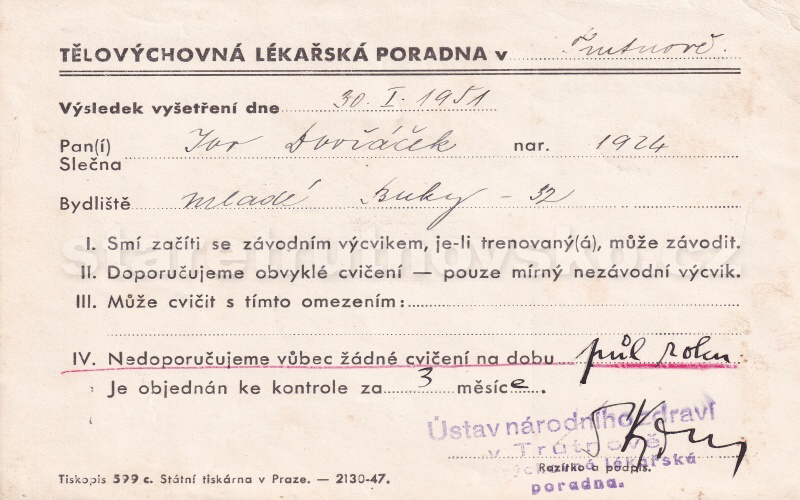 TĚLOVÝCHOVNÁ LÉKAŘSKÁ PORADNA v Trutnově.
Výsledek vyšetření dne 30. I. 1951
Pan(í) Slečna Ivo Dvořáček nar. 1924
Bydliště Mladé Buky - 32
I. Smí začíti se závodním výcvikem, je-li trenovaný(á), může závodit.
II. Doporučujeme obvyklé cvičení — pouze mírný nezávodní výcvik.
III. Může cvičit s tímto omezením:
IV. Nedoporučujeme vůbec žádné cvičení na dobu půl roku
Je objednán ke kontrole za 3 měsíce.
Ústav národního zdraví
v Trutnově
lékařská
poradna.
Razítko a podpis.
Tiskopis 599 c. Státní tiskárna v Praze. — 2130-47.